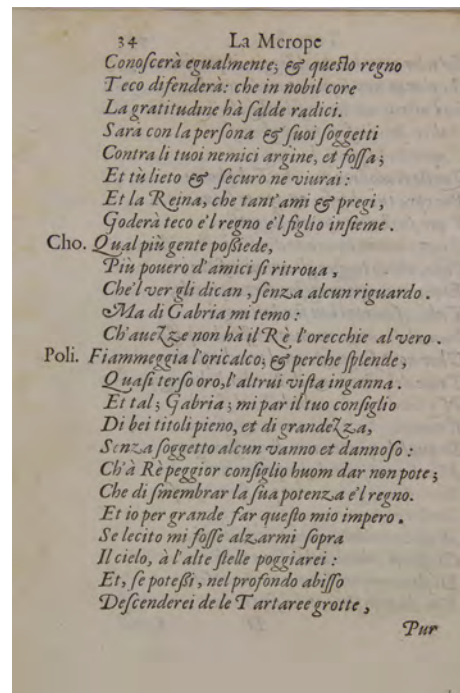 34 La Merope
Conoſcerà egualmente; & queſto regno
Teco difenderà: che in nobil core
La gratitudine hà ſalde radici.
Sarà con la perſona & ſuoi ſoggetti
Contra li tuoi nemici argine, et foſſa;
Et tù lieto & ſecuro ne viurai:
Et la Reina, che tant'ami & pregi,
Goderà teco e'l regno e'l figlio inſieme.
Cho. Qual più gente poßiede,
Più pouero d'amici ſi ritroua,
Che'l ver gli dican, ſenza alcun riguardo.
Ma di Gabria mi temo:
Ch'auezze non hà il Rè l'orecchie al vero.
Poli. Fiammeggia l'oricalco; & perche ſplende,
Quaſi terſo oro, l'altrui viſta inganna.
Et tal; Gabria; mi par il tuo conſiglio
Di bei titoli pieno, et di grandezza,
Senza ſoggetto alcun vanno et dannoſo:
Ch'à Rè peggior conſiglio huom dar non pote;
Che di ſmembrar la ſua potenza e'l regno.
Et io per grande far queſto mio impero.
Se lecito mi foſſe alzarmi ſopra
Il cielo, à l'alte ſtelle poggiarei:
Et, ſe poteßi, nel profondo abiſſo
Deſcenderei de le Tartaree grotte,
Pur